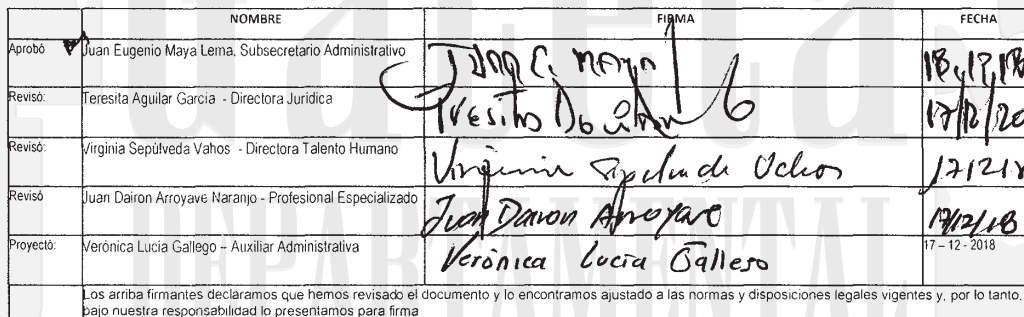 NOMBRE FIRMA FECHA
Aprobó Juan Eugenio Maya Lema, Subsecretario Administrativo Juan E. Maya 18,12,18
Revisó: Teresita Aguilar García - Directora Jurídica Teresita Aguilar 17/12/20
Revisó: Virginia Sepúlveda Vahos - Directora Talento Humano Virginia Sepulveda Vahos 171218
Revisó Juan Dairon Arroyave Naranjo - Profesional Especializado Juan Dairon Arroyave 17/12/18
Proyectó: Verónica Lucia Gallego – Auxiliar Administrativa Verónica Lucía Gallego 17 – 12 - 2018
Los arriba firmantes declaramos que hemos revisado el documento y lo encontramos ajustado a las normas y disposiciones legales vigentes y, por lo tanto,
bajo nuestra responsabilidad lo presentamos para firma
DEPARTAMENTAL